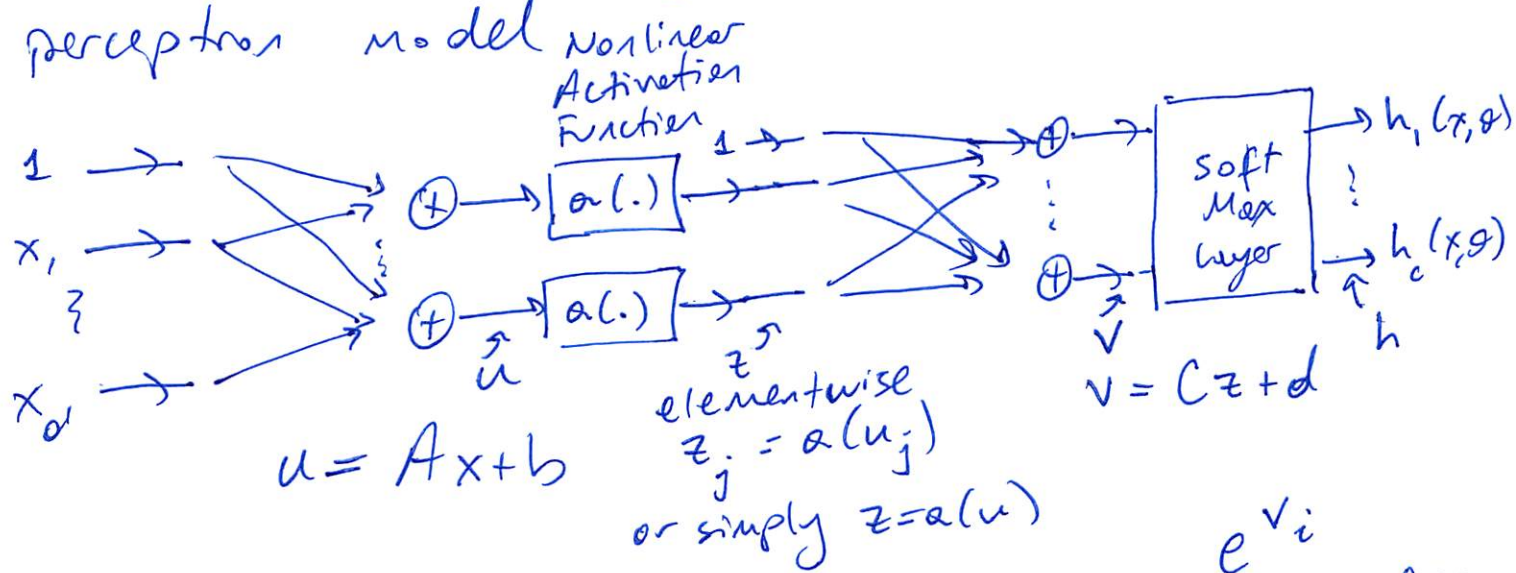 perceptron model Nonlinear
Activation
Function
1
1
x₁
⋮
x_d
⊕
⊕
⋮
u
a(.)
a(.)
z
⊕
⋮
⊕
v
soft
Max
layer
h₁(x,θ)
⋮
h_c(x,θ)
h
u = Ax+b
elementwise
z_j = a(u_j)
or simply z=a(u)
v = Cz+d
e^{v_i}